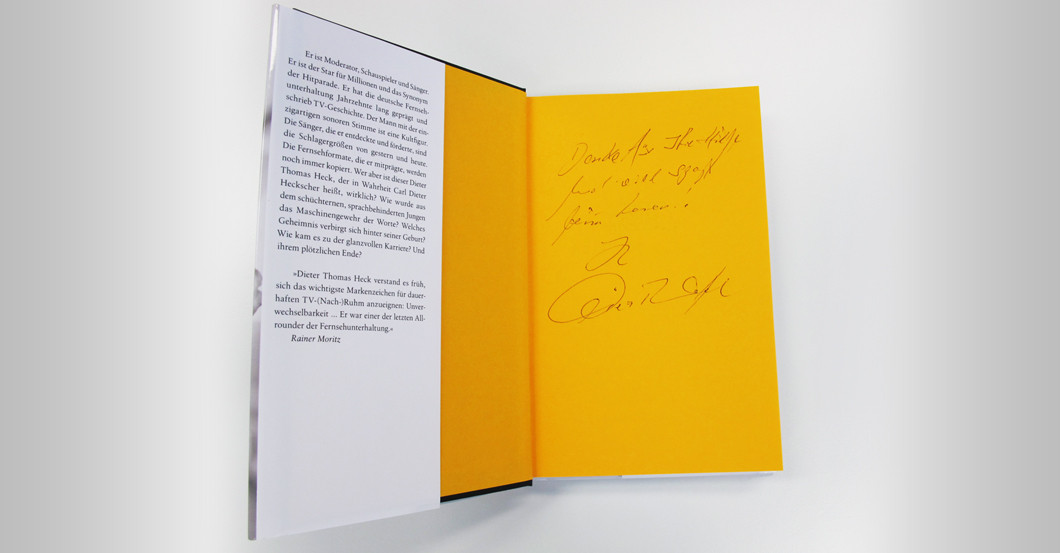 Er ist Moderator, Schauspieler und Sänger.
Er ist der Star für Millionen und das Synonym
der Hitparade. Er hat die deutsche Fernseh-
unterhaltung Jahrzehnte lang geprägt und
schrieb TV-Geschichte. Der Mann mit der ein-
zigartigen sonoren Stimme ist eine Kultfigur.
Die Sänger, die er entdeckte und förderte, sind
die Schlagergrößen von gestern und heute.
Die Fernsehformate, die er mitprägte, werden
noch immer kopiert. Wer aber ist dieser Dieter
Thomas Heck, der in Wahrheit Carl Dieter
Heckscher heißt, wirklich? Wie wurde aus
dem schüchternen, sprachbehinderten Jungen
das Maschinengewehr der Worte? Welches
Geheimnis verbirgt sich hinter seiner Geburt?
Wie kam es zu der glanzvollen Karriere? Und
ihrem plötzlichen Ende?
»Dieter Thomas Heck verstand es früh,
sich das wichtigste Markenzeichen für dauer-
haften TV-(Nach-)Ruhm anzueignen: Unver-
wechselbarkeit ... Er war einer der letzten All-
rounder der Fernsehunterhaltung.«
Rainer Moritz
Danke für Ihre Hilfe
und viel Spaß
beim Lesen!